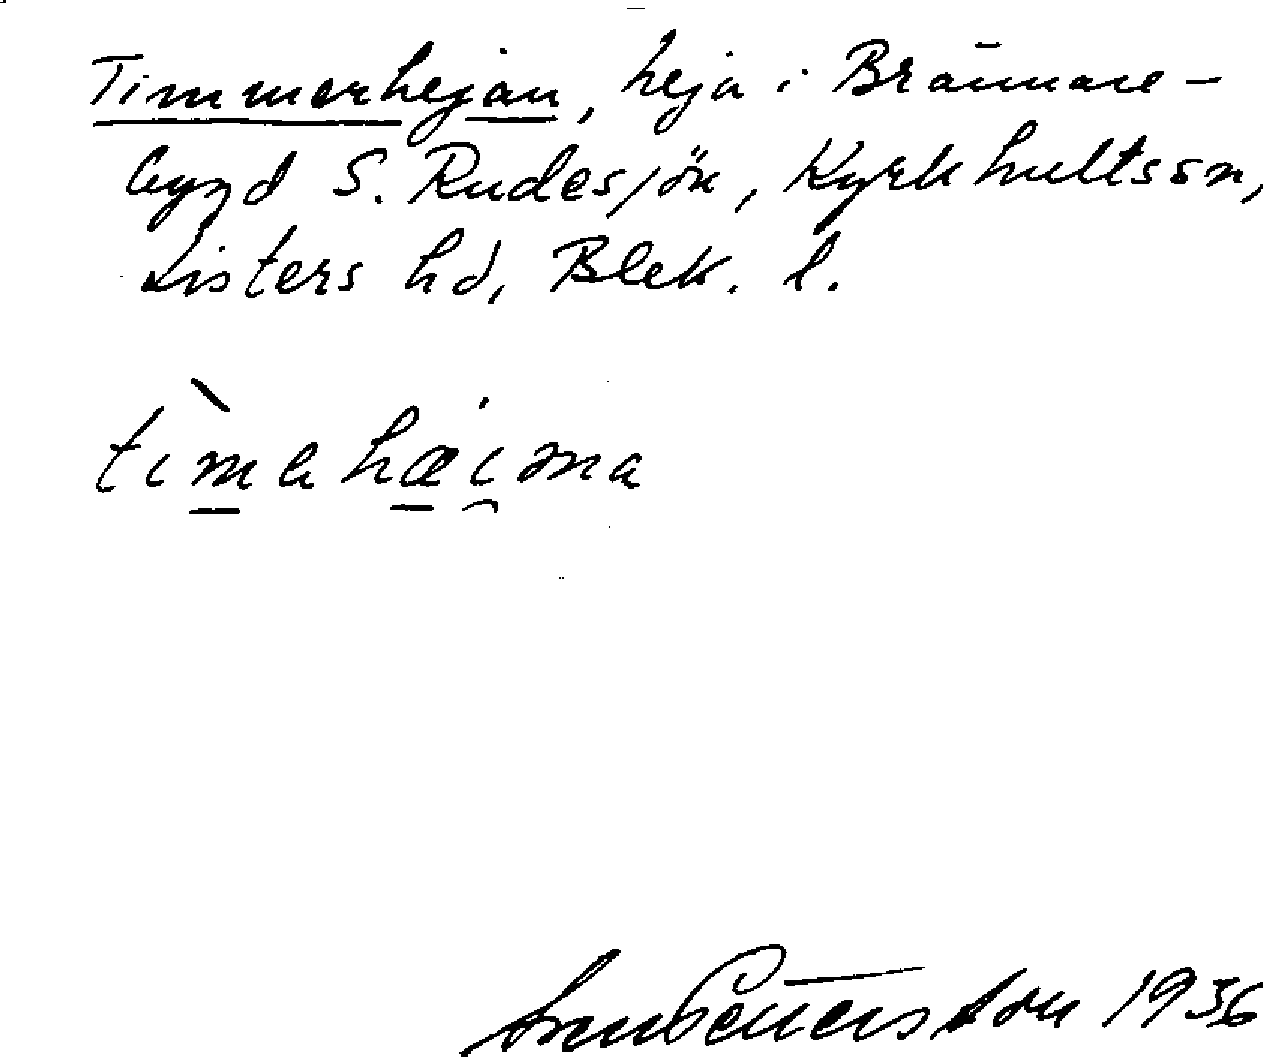 Timmerhejan, heja i Brännare-
bygd S. Rudesjön, Kyrkhultssn,
Listers hd, Blek. l.
1936